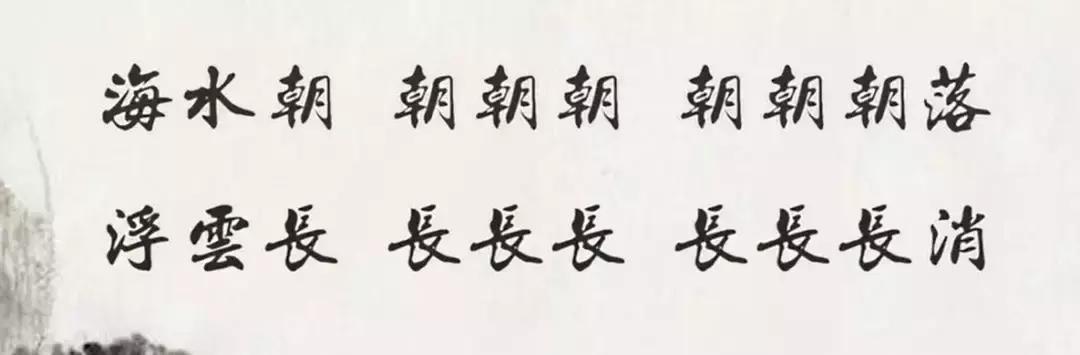 海水朝 朝朝朝 朝朝朝落
浮雲長 長長長 長長長消